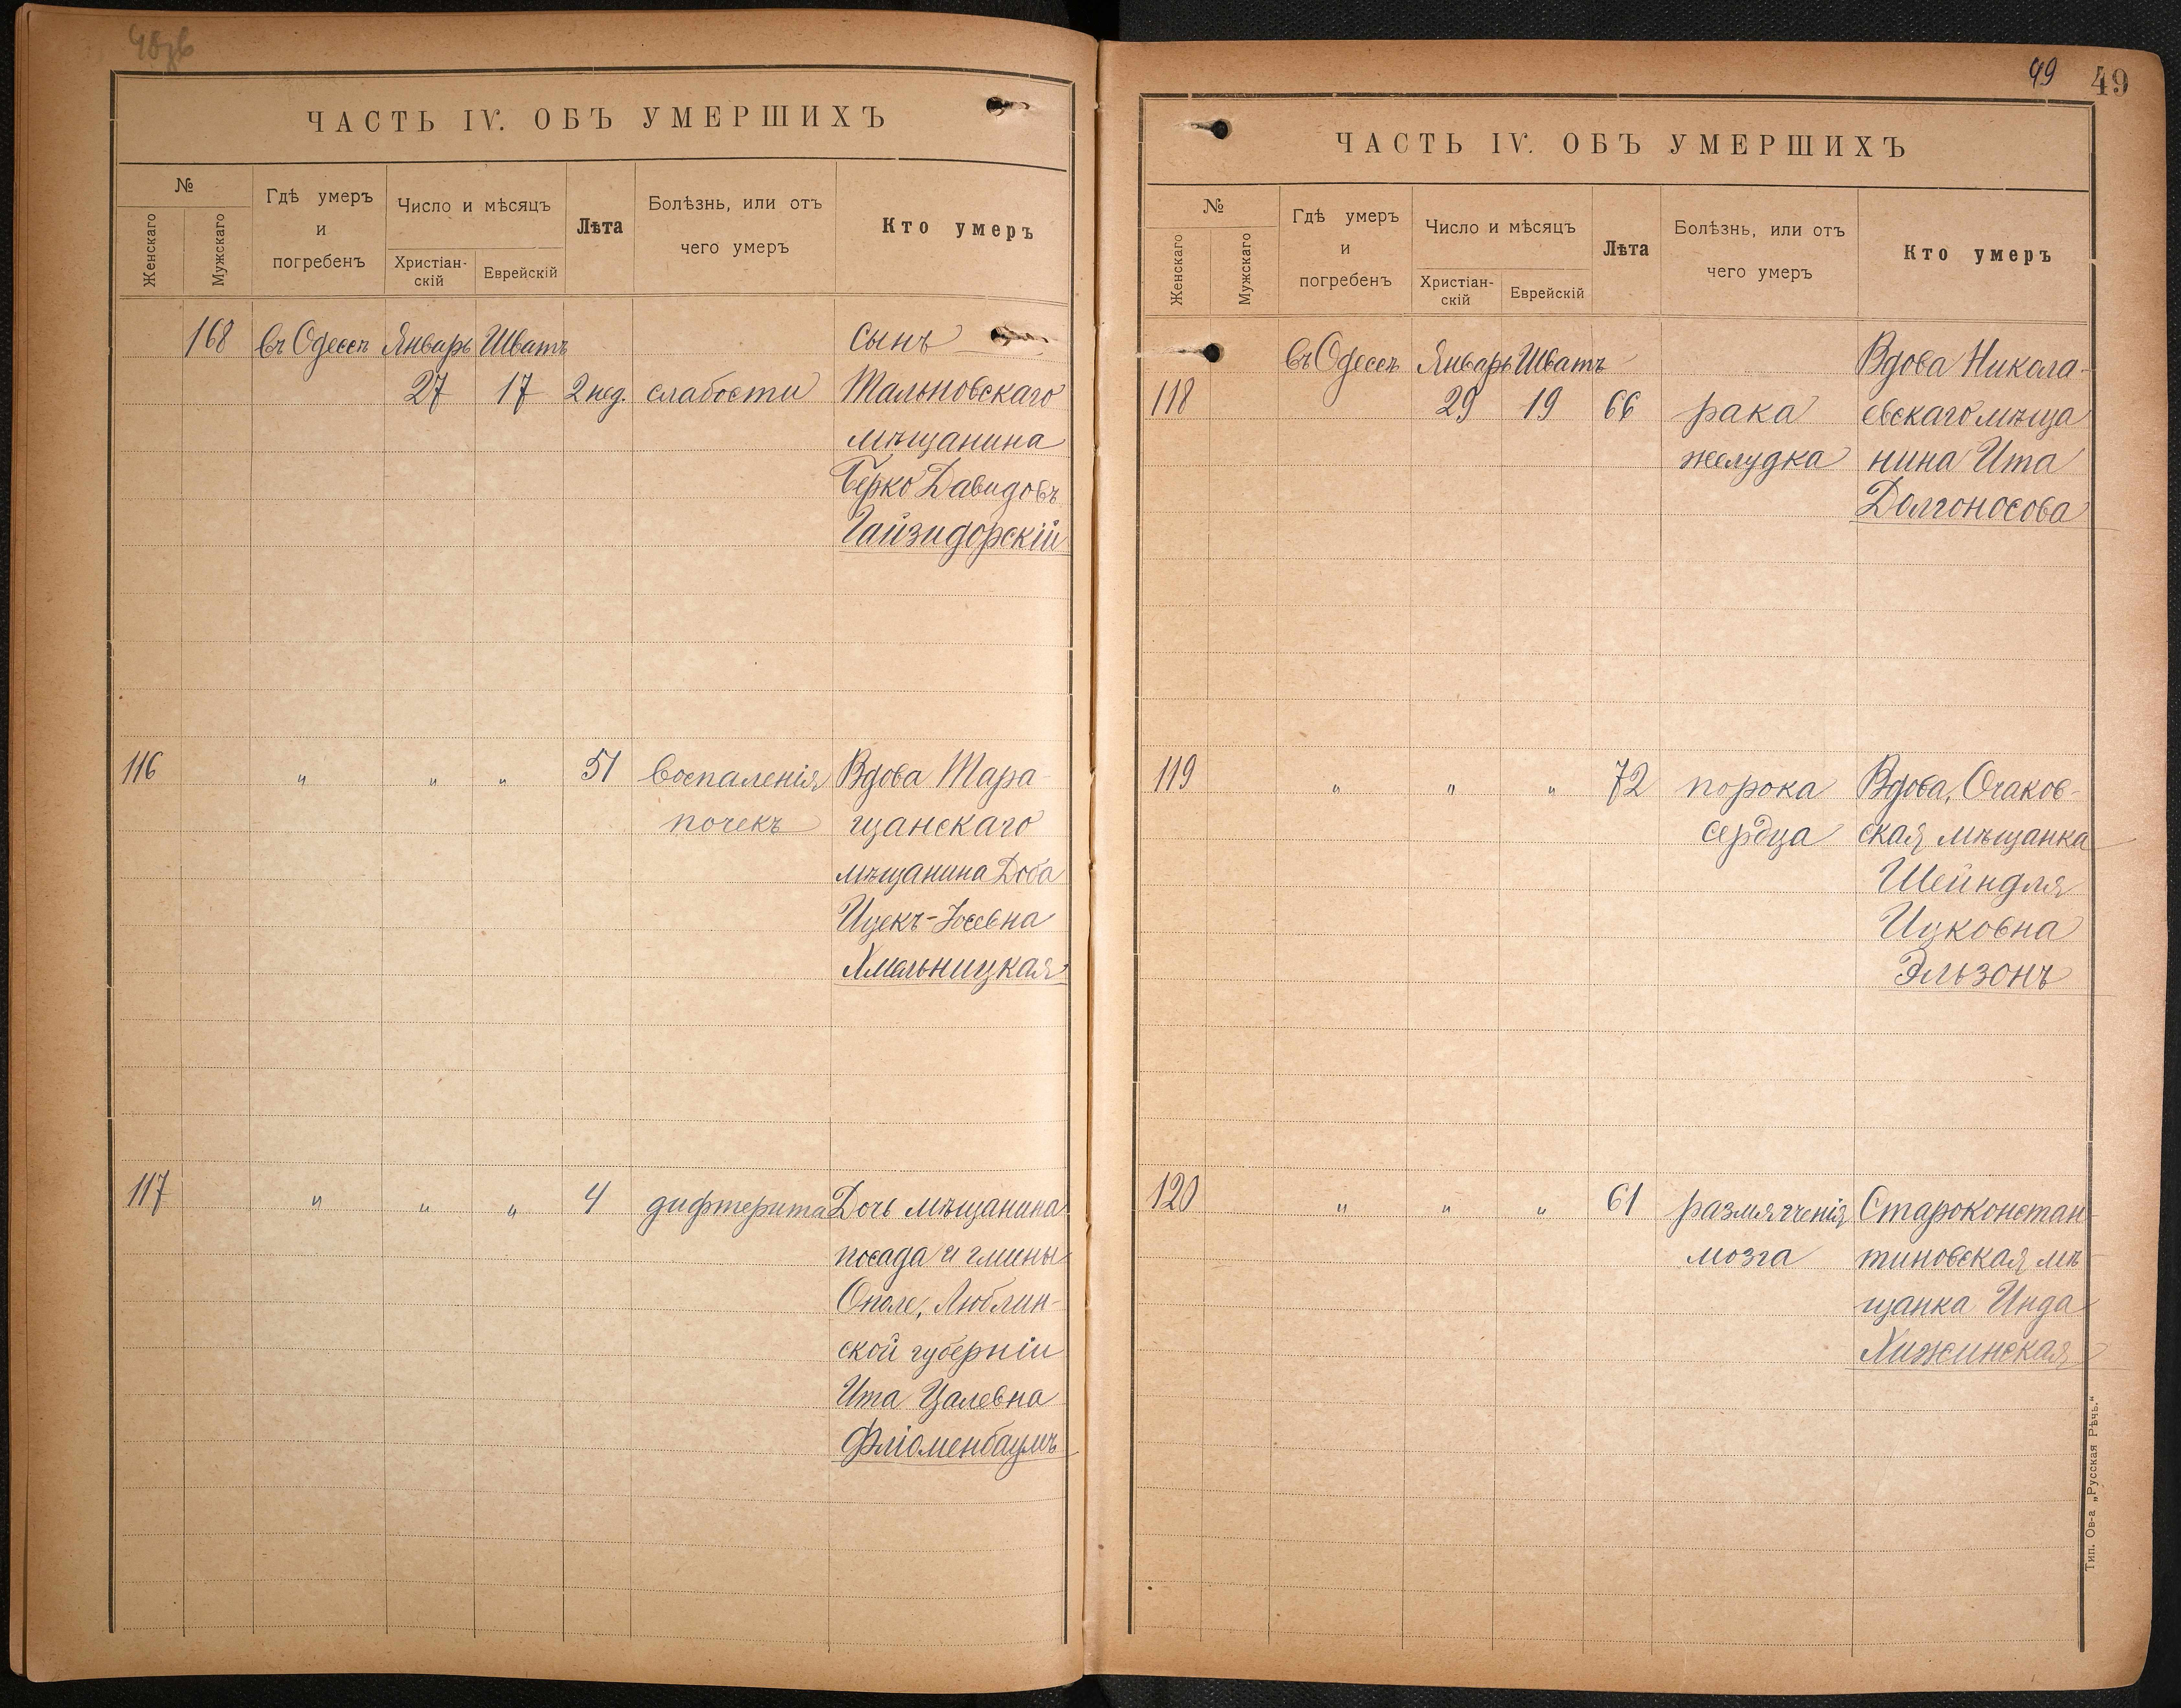 ЧАСТЬ IV. ОБЪ УМЕРШИХЪ
№
Женскаго
Мужскаго
Гдѣ умеръ
и
погребенъ
Число и мѣсяцъ
Христіан-
скій
Еврейскій
Лѣта
Болѣзнь, или отъ
чего умеръ
Кто умеръ
168 въ Одессѣ Январь Шватъ сынъ
27 17 2 нед. слабости Тальновскаго
мѣщанина
Берко Давидовъ
Гайзидорскій
116 " " " 51 воспаленія Вдова Тара-
почекъ щанскаго
мѣщанина Доба
Ицекъ-Іосевна
Хмельницкая
117 " " " 4 дифтерита Дочь мѣщанина
посада и гмины
Ополе, Люблин-
ской губерніи
Ита Цалевна
Фліоменбаумъ
49 49
ЧАСТЬ IV. ОБЪ УМЕРШИХЪ
№
Женскаго
Мужскаго
Гдѣ умеръ
и
погребенъ
Число и мѣсяцъ
Христіан-
скій
Еврейскій
Лѣта
Болѣзнь, или отъ
чего умеръ
Кто умеръ
въ Одессѣ Январь Шватъ Вдова Никола-
118 29 19 66 рака евскаго мѣща
желудка нина Ита
Долгоносова
119 " " " 72 порока Вдова, Очаков-
сердца ская мѣщанка
Шейндля
Ицковна
Эльзонъ
120 " " " 61 размягченія Староконстан-
мозга тиновская мѣ-
щанка Инда
Хижинская
Тип. Ов-а „Русская Рѣчь."